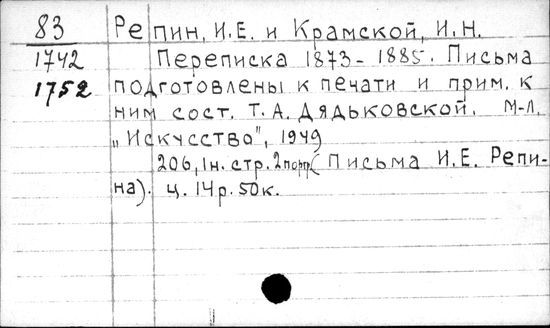 83 Репин, И.Е. и Крамской, И.Н.
1742 Переписка 1873-1885. Письма
1752 подготовлены к печати и прим. к
ним сост. Т.А. Дядьковской. М-Л.
„Искусство", 1949
206, 1н. стр. 2 портр. (Письма И.Е. Репи-
на). ц. 14р. 50к.